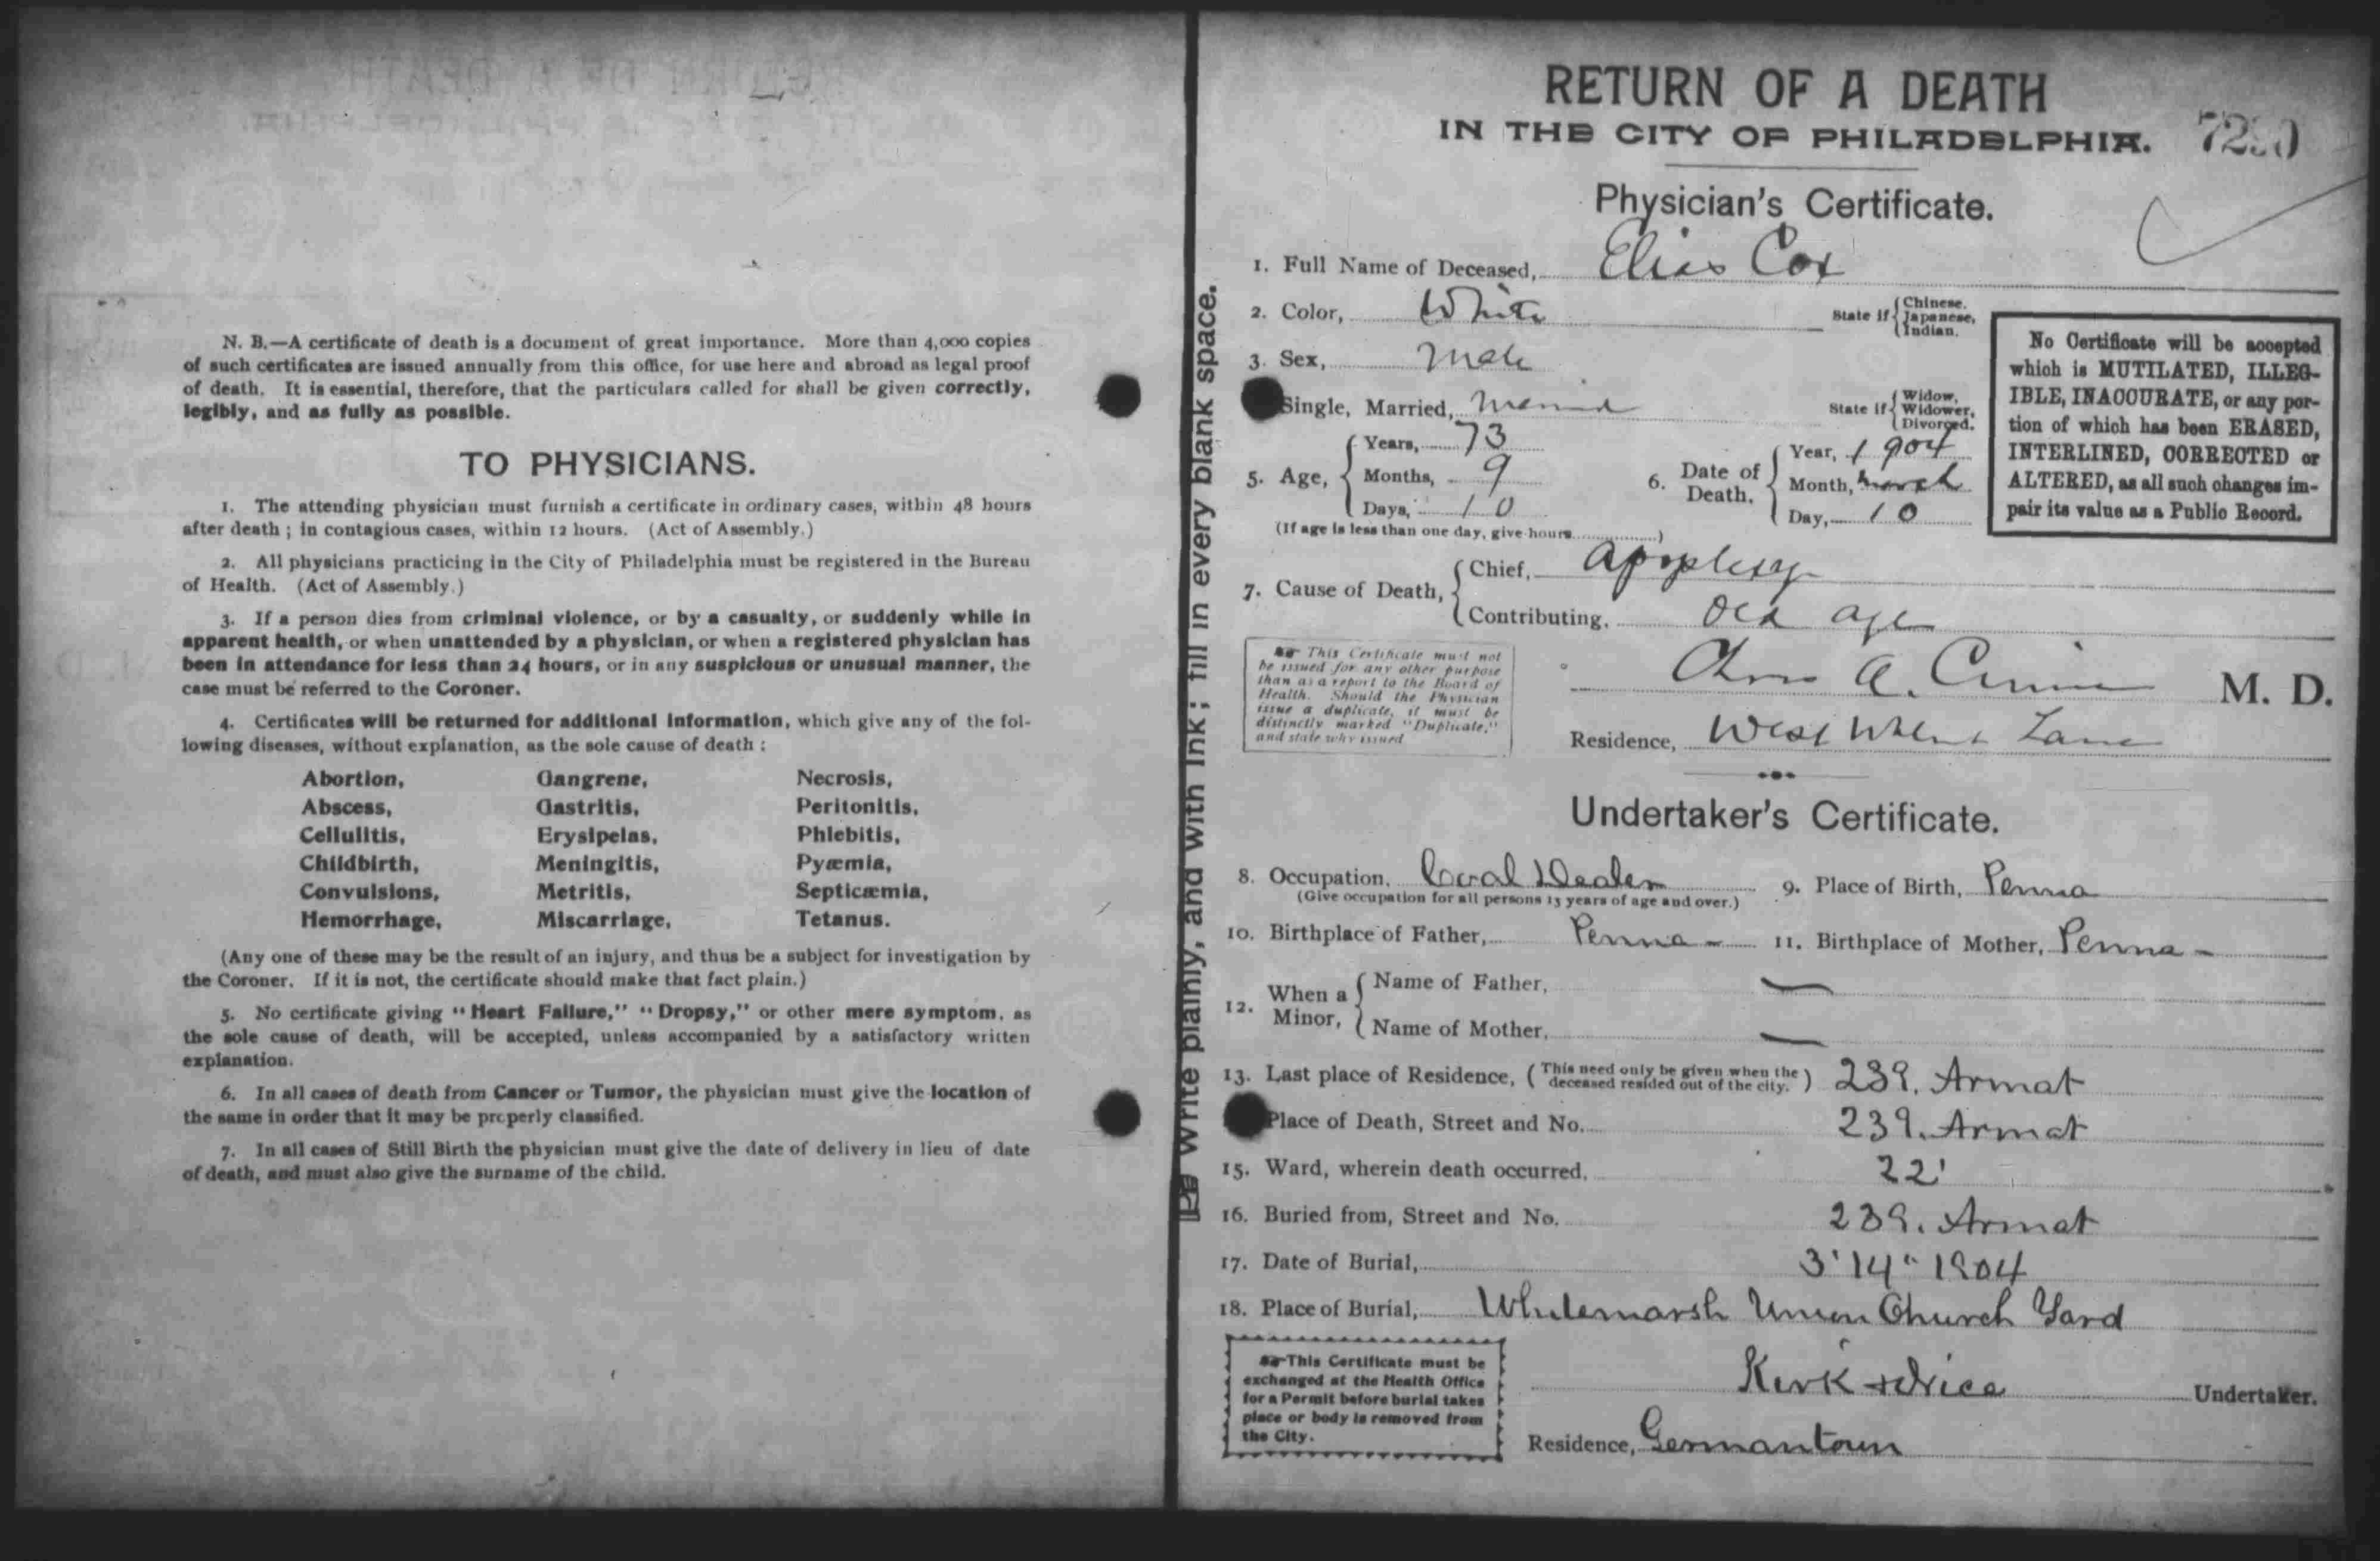 N. B.—A certificate of death is a document of great importance. More than 4,000 copies
of such certificates are issued annually from this office, for use here and abroad as legal proof
of death. It is essential, therefore, that the particulars called for shall be given correctly,
legibly, and as fully as possible.
TO PHYSICIANS.
1. The attending physician must furnish a certificate in ordinary cases, within 48 hours
after death ; in contagious cases, within 12 hours. (Act of Assembly.)
2. All physicians practicing in the City of Philadelphia must be registered in the Bureau
of Health. (Act of Assembly.)
3. If a person dies from criminal violence, or by a casualty, or suddenly while in
apparent health, or when unattended by a physician, or when a registered physician has
been in attendance for less than 24 hours, or in any suspicious or unusual manner, the
case must be referred to the Coroner.
4. Certificates will be returned for additional information, which give any of the fol-
lowing diseases, without explanation, as the sole cause of death :
Abortion, Gangrene, Necrosis,
Abscess, Gastritis, Peritonitis,
Cellulitis, Erysipelas, Phlebitis,
Childbirth, Meningitis, Pyæmia,
Convulsions, Metritis, Septicæmia,
Hemorrhage, Miscarriage, Tetanus.
(Any one of these may be the result of an injury, and thus be a subject for investigation by
the Coroner. If it is not, the certificate should make that fact plain.)
5. No certificate giving “Heart Failure,” “Dropsy,” or other mere symptom, as
the sole cause of death, will be accepted, unless accompanied by a satisfactory written
explanation.
6. In all cases of death from Cancer or Tumor, the physician must give the location of
the same in order that it may be properly classified.
7. In all cases of Still Birth the physician must give the date of delivery in lieu of date
of death, and must also give the surname of the child.
Write plainly, and with ink; fill in every blank space.
RETURN OF A DEATH
IN THE CITY OF PHILADELPHIA.
Physician's Certificate.
1. Full Name of Deceased, Elias Cox
2. Color, White State if { Chinese, Japanese, Indian.
3. Sex, Male
Single, Married, Married State if { Widow, Widower, Divorced.
5. Age, { Years, 73
Months, 9
Days, 10
(If age is less than one day, give hours)
6. Date of Death, { Year, 1904
Month, March
Day, 10
No Certificate will be accepted
which is MUTILATED, ILLEG-
IBLE, INACCURATE, or any por-
tion of which has been ERASED,
INTERLINED, CORRECTED or
ALTERED, as all such changes im-
pair its value as a Public Record.
7. Cause of Death, { Chief, Apoplexy
Contributing, Old age
This Certificate must not
be issued for any other purpose
than as a report to the Board of
Health. Should the Physician
issue a duplicate, it must be
distinctly marked “Duplicate,”
and state why issued
A. M. D.
Residence, West Lane
Undertaker's Certificate.
8. Occupation, Coal Dealer 9. Place of Birth, Penna
(Give occupation for all persons 15 years of age and over.)
10. Birthplace of Father, Penna - 11. Birthplace of Mother, Penna -
12. When a Minor, { Name of Father, —
Name of Mother, —
13. Last place of Residence, ( This need only be given when the deceased resided out of the city. ) 239. Armat
Place of Death, Street and No. 239. Armat
15. Ward, wherein death occurred, 22'
16. Buried from, Street and No. 239. Armat
17. Date of Burial, 3' 14" 1904
18. Place of Burial, Whitemarsh Union Church Yard
This Certificate must be
exchanged at the Health Office
for a Permit before burial takes
place or body is removed from
the City.
Kirk & Nice Undertaker.
Residence, Germantown